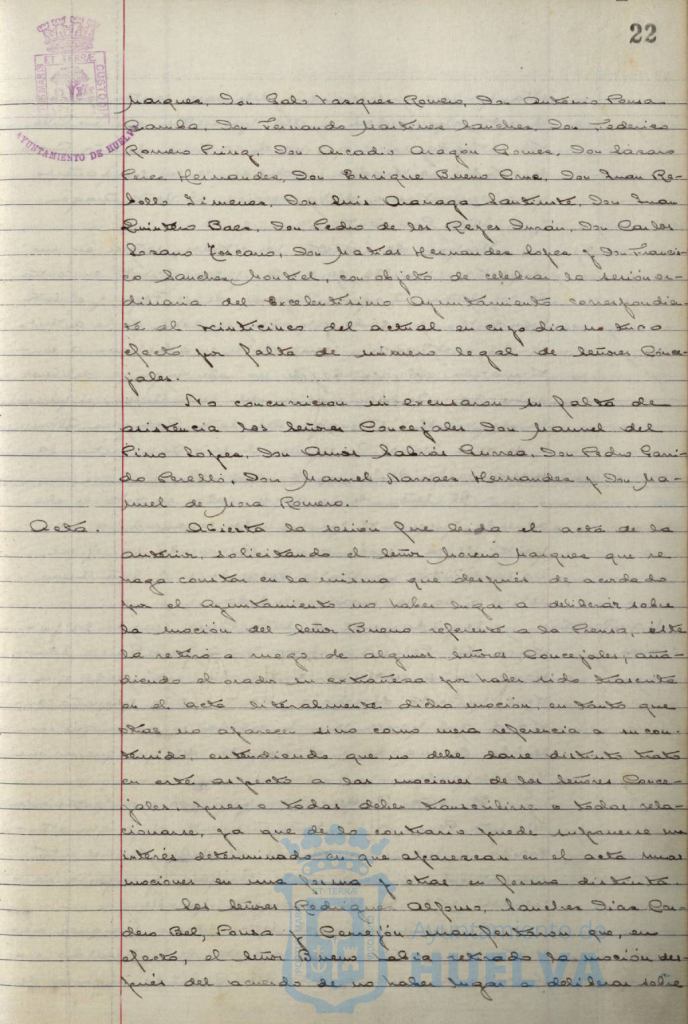 22
ET TERRÆ
CUSTODIT
AYUNTAMIENTO DE HUELVA
Marquez, Don Galo Vazquez Romero, Don Antonio Pousa
Camba, Don Fernando Martinez Sanchez, Don Federico
Romero Don Arcadio Aragón Gomez, Don Lázaro
Perez Hernandez, Don Enrique Bueno Cruz, Don Juan Re-
bollo Jimenez, Don Luis Don Juan
Quintero Baez, Don Pedro de los Reyes Durán, Don Carlos
Lozano Toscano, Don Matias Hernandez Lopez y Don Francis-
co Sanchez Montiel, con objeto de celebrar la sesión or-
dinaria del Excelentisimo Ayuntamiento correspondien-
te al veinticinco del actual en cuyo dia no tuvo
efecto por falta de número legal de Señores Conce-
jales.
No concurrieron ni excusaron su falta de
asistencia los Señores Concejales Don Manuel del
Pino Lopez, Don Amós Sabrás Gurrea, Don Pedro Garri-
do Perelló, Don Manuel Narvaez Hernandez y Don Ma-
nuel de Mora Romero.
Acta. Abierta la sesión fue leida el acta de la
anterior, solicitando el Señor Moreno Marquez que se
haga constar en la misma que después de acordado
por el Ayuntamiento no haber lugar a deliberar sobre
la moción del Señor Bueno referente a la Prensa, éste
la retiró a ruego de algunos Señores Concejales, aña-
diendo el orador su extrañeza por haber sido trascrita
en el acta literalmente dicha moción, en tanto que
otras no aparecen sino como mera referencia a su con-
tenido, entendiendo que no debe darse distinto trato
en este aspecto a las mociones de los Señores Conce-
jales, pues o todas deben transcribirse o todas rela-
cionarse, ya que de lo contrario puede suponerse un
interés determinado en que aparezcan en el acta unas
mociones en una forma y otras en forma distinta.
Los Señores Rodriguez Alfonso, Sanchez Diaz, Cor-
dero Bel, Pousa y Cerrejón manifestaron que, en
efecto, el Señor Bueno habia retirado la moción des-
pués del acuerdo de no haber lugar a deliberar sobre
Ayuntamiento de
HUELVA